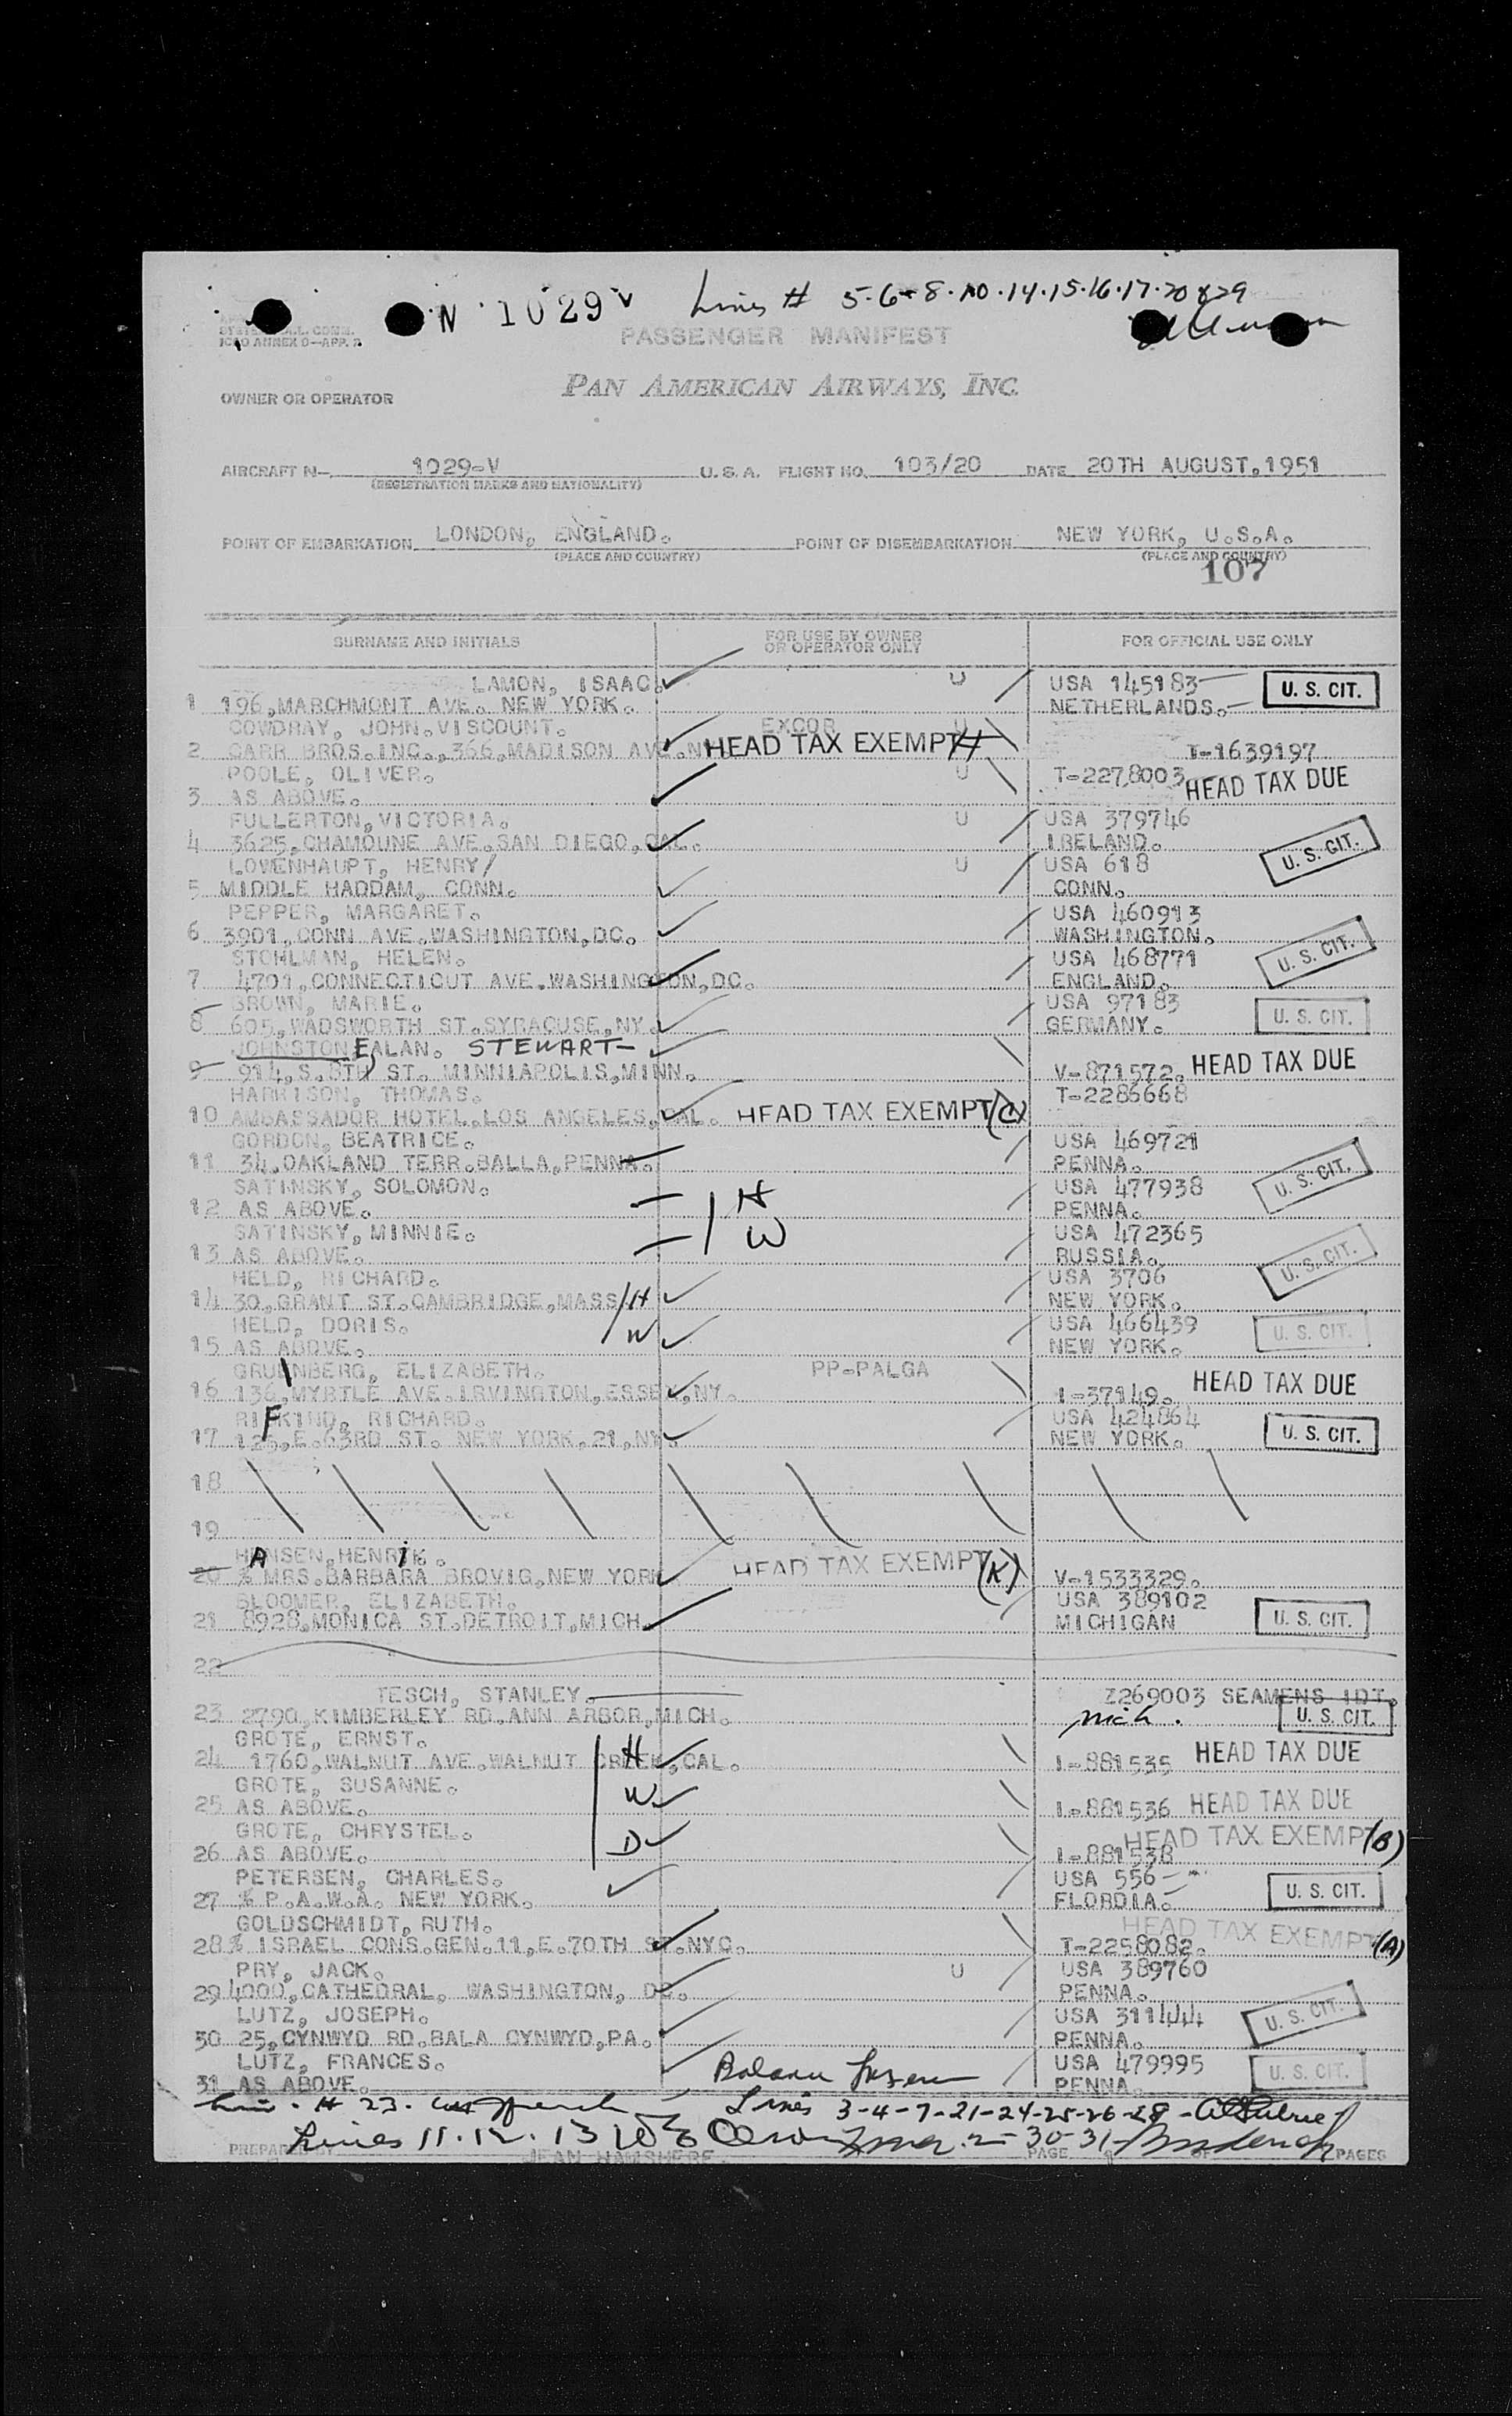 N 1029 V Lines # 5-6-8-10-14-15-16-17-20 & 29
ICAO ANNEX 9—APP. 2
PASSENGER MANIFEST
OWNER OR OPERATOR PAN AMERICAN AIRWAYS, INC.
AIRCRAFT N— 1029-V U. S. A. FLIGHT NO. 103/20 DATE 20TH AUGUST, 1951
(REGISTRATION MARKS AND NATIONALITY)
POINT OF EMBARKATION LONDON, ENGLAND. POINT OF DISEMBARKATION NEW YORK, U.S.A.
(PLACE AND COUNTRY) (PLACE AND COUNTRY)
107
SURNAME AND INITIALS FOR USE BY OWNER OR OPERATOR ONLY FOR OFFICIAL USE ONLY
LAMON, ISAAC. U USA 145183 U. S. CIT.
1 196, MARCHMONT AVE. NEW YORK. NETHERLANDS.
COWDRAY, JOHN. VISCOUNT. EXCOR U
2 CARR BROS. INC., 366, MADISON AVE. NY HEAD TAX EXEMPT H T-1639197
POOLE, OLIVER. U T-2278003 HEAD TAX DUE
3 AS ABOVE.
FULLERTON, VICTORIA. U USA 379746
4 3625, CHAMOUNE AVE. SAN DIEGO, CAL. IRELAND. U. S. CIT.
LOWENHAUPT, HENRY/ U USA 618
5 MIDDLE HADDAM, CONN. CONN.
PEPPER, MARGARET. USA 460913
6 3901, CONN AVE. WASHINGTON, DC. WASHINGTON.
STOHLMAN, HELEN. USA 468771 U. S. CIT.
7 4701, CONNECTICUT AVE. WASHINGTON, DC. ENGLAND.
BROWN, MARIE. USA 97183
8 605, WADSWORTH ST. SYRACUSE, NY. GERMANY. U. S. CIT.
JOHNSTONE, ALAN. STEWART—
9 914, S. 8TH ST. MINNIAPOLIS, MINN. V-871572. HEAD TAX DUE
HARRISON, THOMAS. T-2286668
10 AMBASSADOR HOTEL, LOS ANGELES, CAL. HEAD TAX EXEMPT (C)
GORDON, BEATRICE. USA 469721
11 34, OAKLAND TERR. BALLA, PENNA. PENNA.
SATINSKY, SOLOMON. H USA 477938 U. S. CIT.
12 AS ABOVE. PENNA.
SATINSKY, MINNIE. W USA 472365
13 AS ABOVE. RUSSIA.
HELD, RICHARD. USA 3706 U. S. CIT.
14 30, GRANT ST. CAMBRIDGE, MASS H NEW YORK.
HELD, DORIS. USA 466439
15 AS ABOVE. W NEW YORK. U. S. CIT.
GRUNBERG, ELIZABETH. PP-PALGA
16 136, MYRTLE AVE. IRVINGTON, ESSEX, NY. I-37149. HEAD TAX DUE
RIFKIND, RICHARD. USA 424864
17 125, E. 63RD ST. NEW YORK, 21, NY. NEW YORK. U. S. CIT.
18
19
HANSEN, HENRIK.
20 % MRS. BARBARA BROVIG, NEW YORK HEAD TAX EXEMPT (K) V-1533329.
BLOOMER, ELIZABETH. USA 389102
21 8928, MONICA ST. DETROIT, MICH. MICHIGAN U. S. CIT.
22
TESCH, STANLEY. Z269003 SEAMENS IDT.
23 2790, KIMBERLEY RD. ANN ARBOR, MICH. Mich. U. S. CIT.
GROTE, ERNST.
24 1760, WALNUT AVE. WALNUT CREEK, CAL. H I-881535 HEAD TAX DUE
GROTE, SUSANNE.
25 AS ABOVE. W I-881536 HEAD TAX DUE
GROTE, CHRYSTEL. HEAD TAX EXEMPT (B)
26 AS ABOVE. D I-881538
PETERSEN, CHARLES. USA 556
27 % P.A.W.A. NEW YORK. FLORDIA. U. S. CIT.
GOLDSCHMIDT, RUTH. HEAD TAX EXEMPT (A)
28 % ISRAEL CONS. GEN. 11, E. 70TH ST. NYC. T-2258082.
PRY, JACK. U USA 389760
29 4000, CATHEDRAL, WASHINGTON, DC. PENNA.
LUTZ, JOSEPH. USA 311444 U. S. CIT.
30 25, CYNWYD RD. BALA CYNWYD, PA. PENNA.
LUTZ, FRANCES. USA 479995 U. S. CIT.
31 AS ABOVE. PENNA.
Line # 23. Lines 3-4-7-21-24-25-26-28
Lines 11.12.13 2-30-31
JEAN HAMSHERE. PAGE OF PAGES